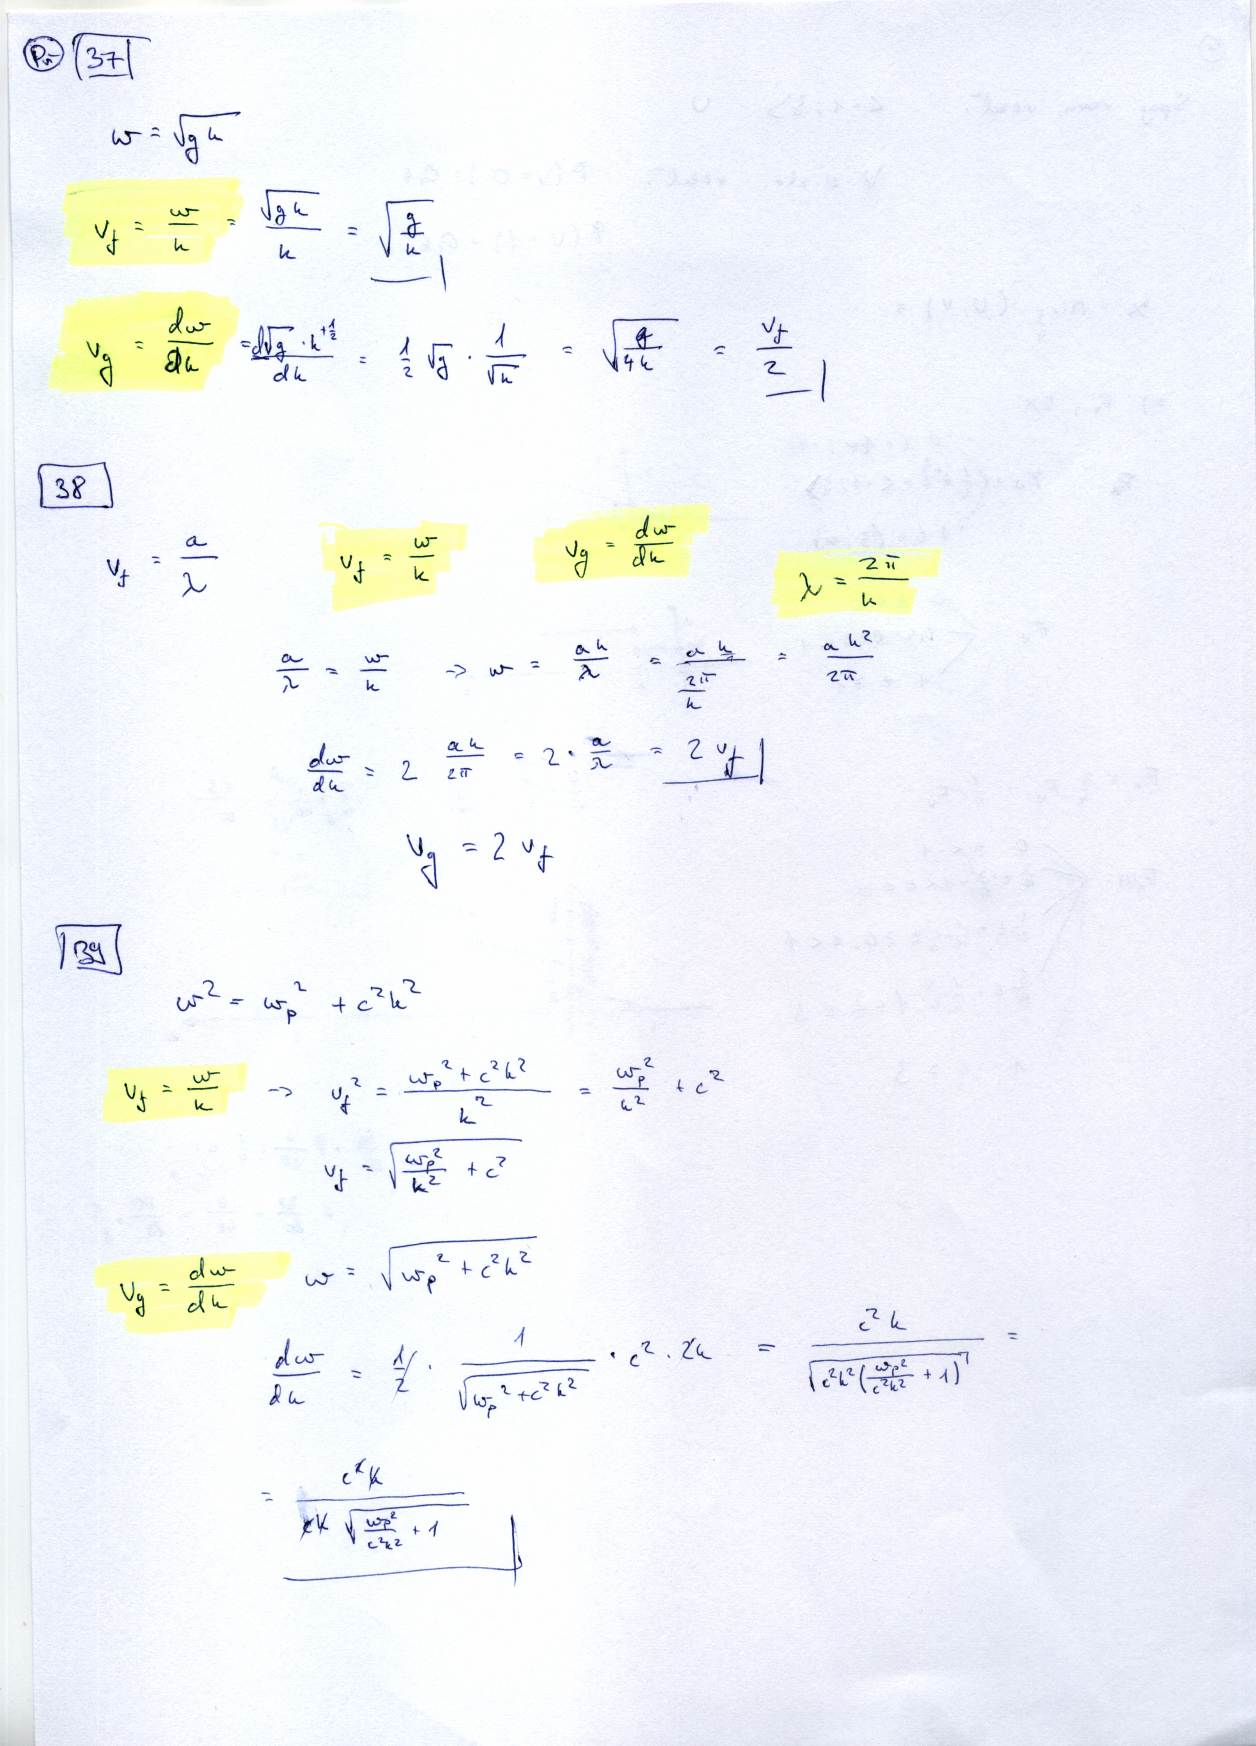 Př 37
w = √(gk)
v_f = w/k = √(gk)/k = √(g/k)
v_g = dw/dk = d√g · k^(+1/2)/dk = 1/2 √g · 1/√k = √(g/4k) = v_f/2
38
v_f = a/λ   v_f = w/k   v_g = dw/dk   λ = 2π/k
a/λ = w/k → w = ak/λ = ak/(2π/k) = ak²/2π
dw/dk = 2 ak/2π = 2 · a/λ = 2 v_f
v_g = 2 v_f
39
w² = w_p² + c²k²
v_f = w/k → v_f² = (w_p² + c²k²)/k² = w_p²/k² + c²
v_f = √(w_p²/k² + c²)
v_g = dw/dk   w = √(w_p² + c²k²)
dw/dk = 1/2 · 1/√(w_p² + c²k²) · c² · 2k = c²k/√(c²k²(w_p²/c²k² + 1)) =
= c²k/(ck √(w_p²/c²k² + 1))